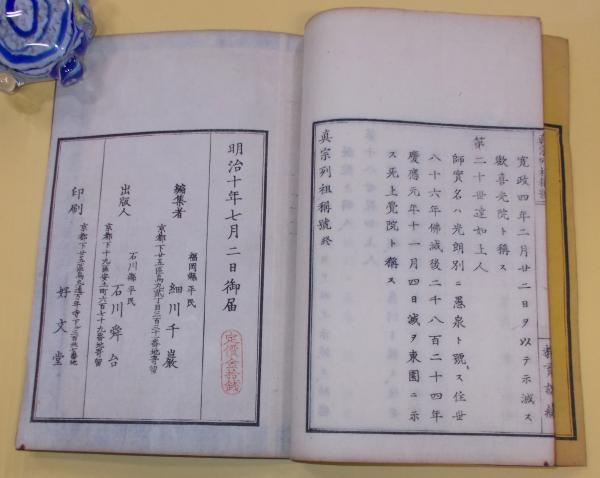 寛政四年二月廿二日ヲ以テ示滅ス
歓喜光院ト稱ス
第二十世達如上人
師實名ハ光朗別ニ愚泉ト號ス住世
八十六年佛滅後二千八百二十四年
慶應元年十一月四日滅ヲ東園ニ示
ス无上覺院ト稱ス
真宗列祖稱號終
明治十年七月二日御届
定價金拾錢
編集者
福岡縣平民
細川千巖
出版人
石川縣平民
石川舜台
京都下十九區安土町六百七十九番地寄留
印刷
好文堂